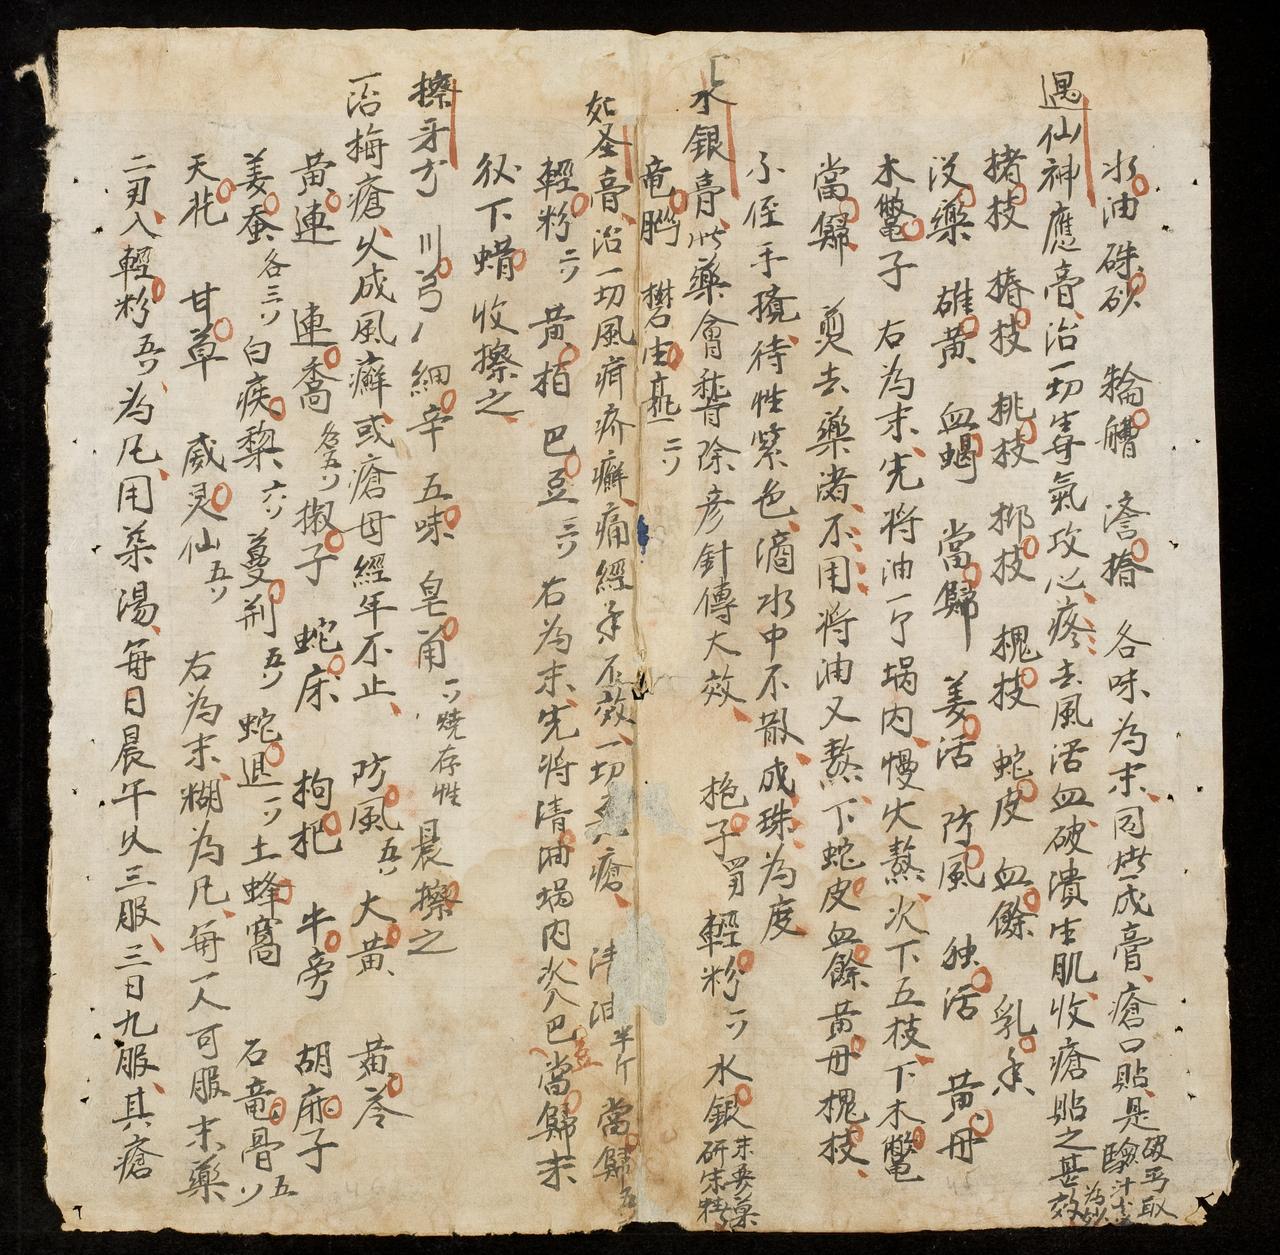 水油 硃砂 輪艚 濇捁 各味為末同撚成膏瘡口貼是
遇仙神應膏治一切毒氣攻心疼去風活血破潰生肌收瘡貼之甚效
楮枝 椿枝 桃枝 柳枝 槐枝 蛇皮 血餘 乳香
没藥 雄黄 血蝎 當歸 羌活 防風 独活 黄丹
木鱉子 右為末先将油一斤堝内慢火熬次下五枝下木鱉
當歸 煎去藥渚不用将油又熬下蛇皮血餘黄丹槐枝
不侄手攪待性紫色滴水中不散成珠為度
水銀膏此藥會 除 針傳大效 子 輕粉一ソ 水銀
竜腦 礬 二ソ
如圣膏治一切風疥癬痛經年不效一切 瘡 油半斤 當歸五
輕粉二ソ 黄柏 巴豆三ソ 右為末先将清油堝内次入巴豆當歸末
後下蜡收擦之
擦牙方 川芎 細辛 五味 皂角一ソ燒存性 晨擦之
一治梅瘡久成風癬或瘡毋經年不止 防風五ソ 大黄 黄芩
黄連 連喬各五ソ 椒子 蛇床 拘杷 牛旁 胡麻子
姜蚕各三ソ 白疾棃六ソ 蔓荊五ソ 蛇退一ソ 土蜂窩 石竜骨五ソ
天花 甘草 威灵仙五ソ 右為末糊為凡每一人可服末藥
二刄入輕粉五ソ為凡用茶湯每日晨午久三服三日九服其瘡